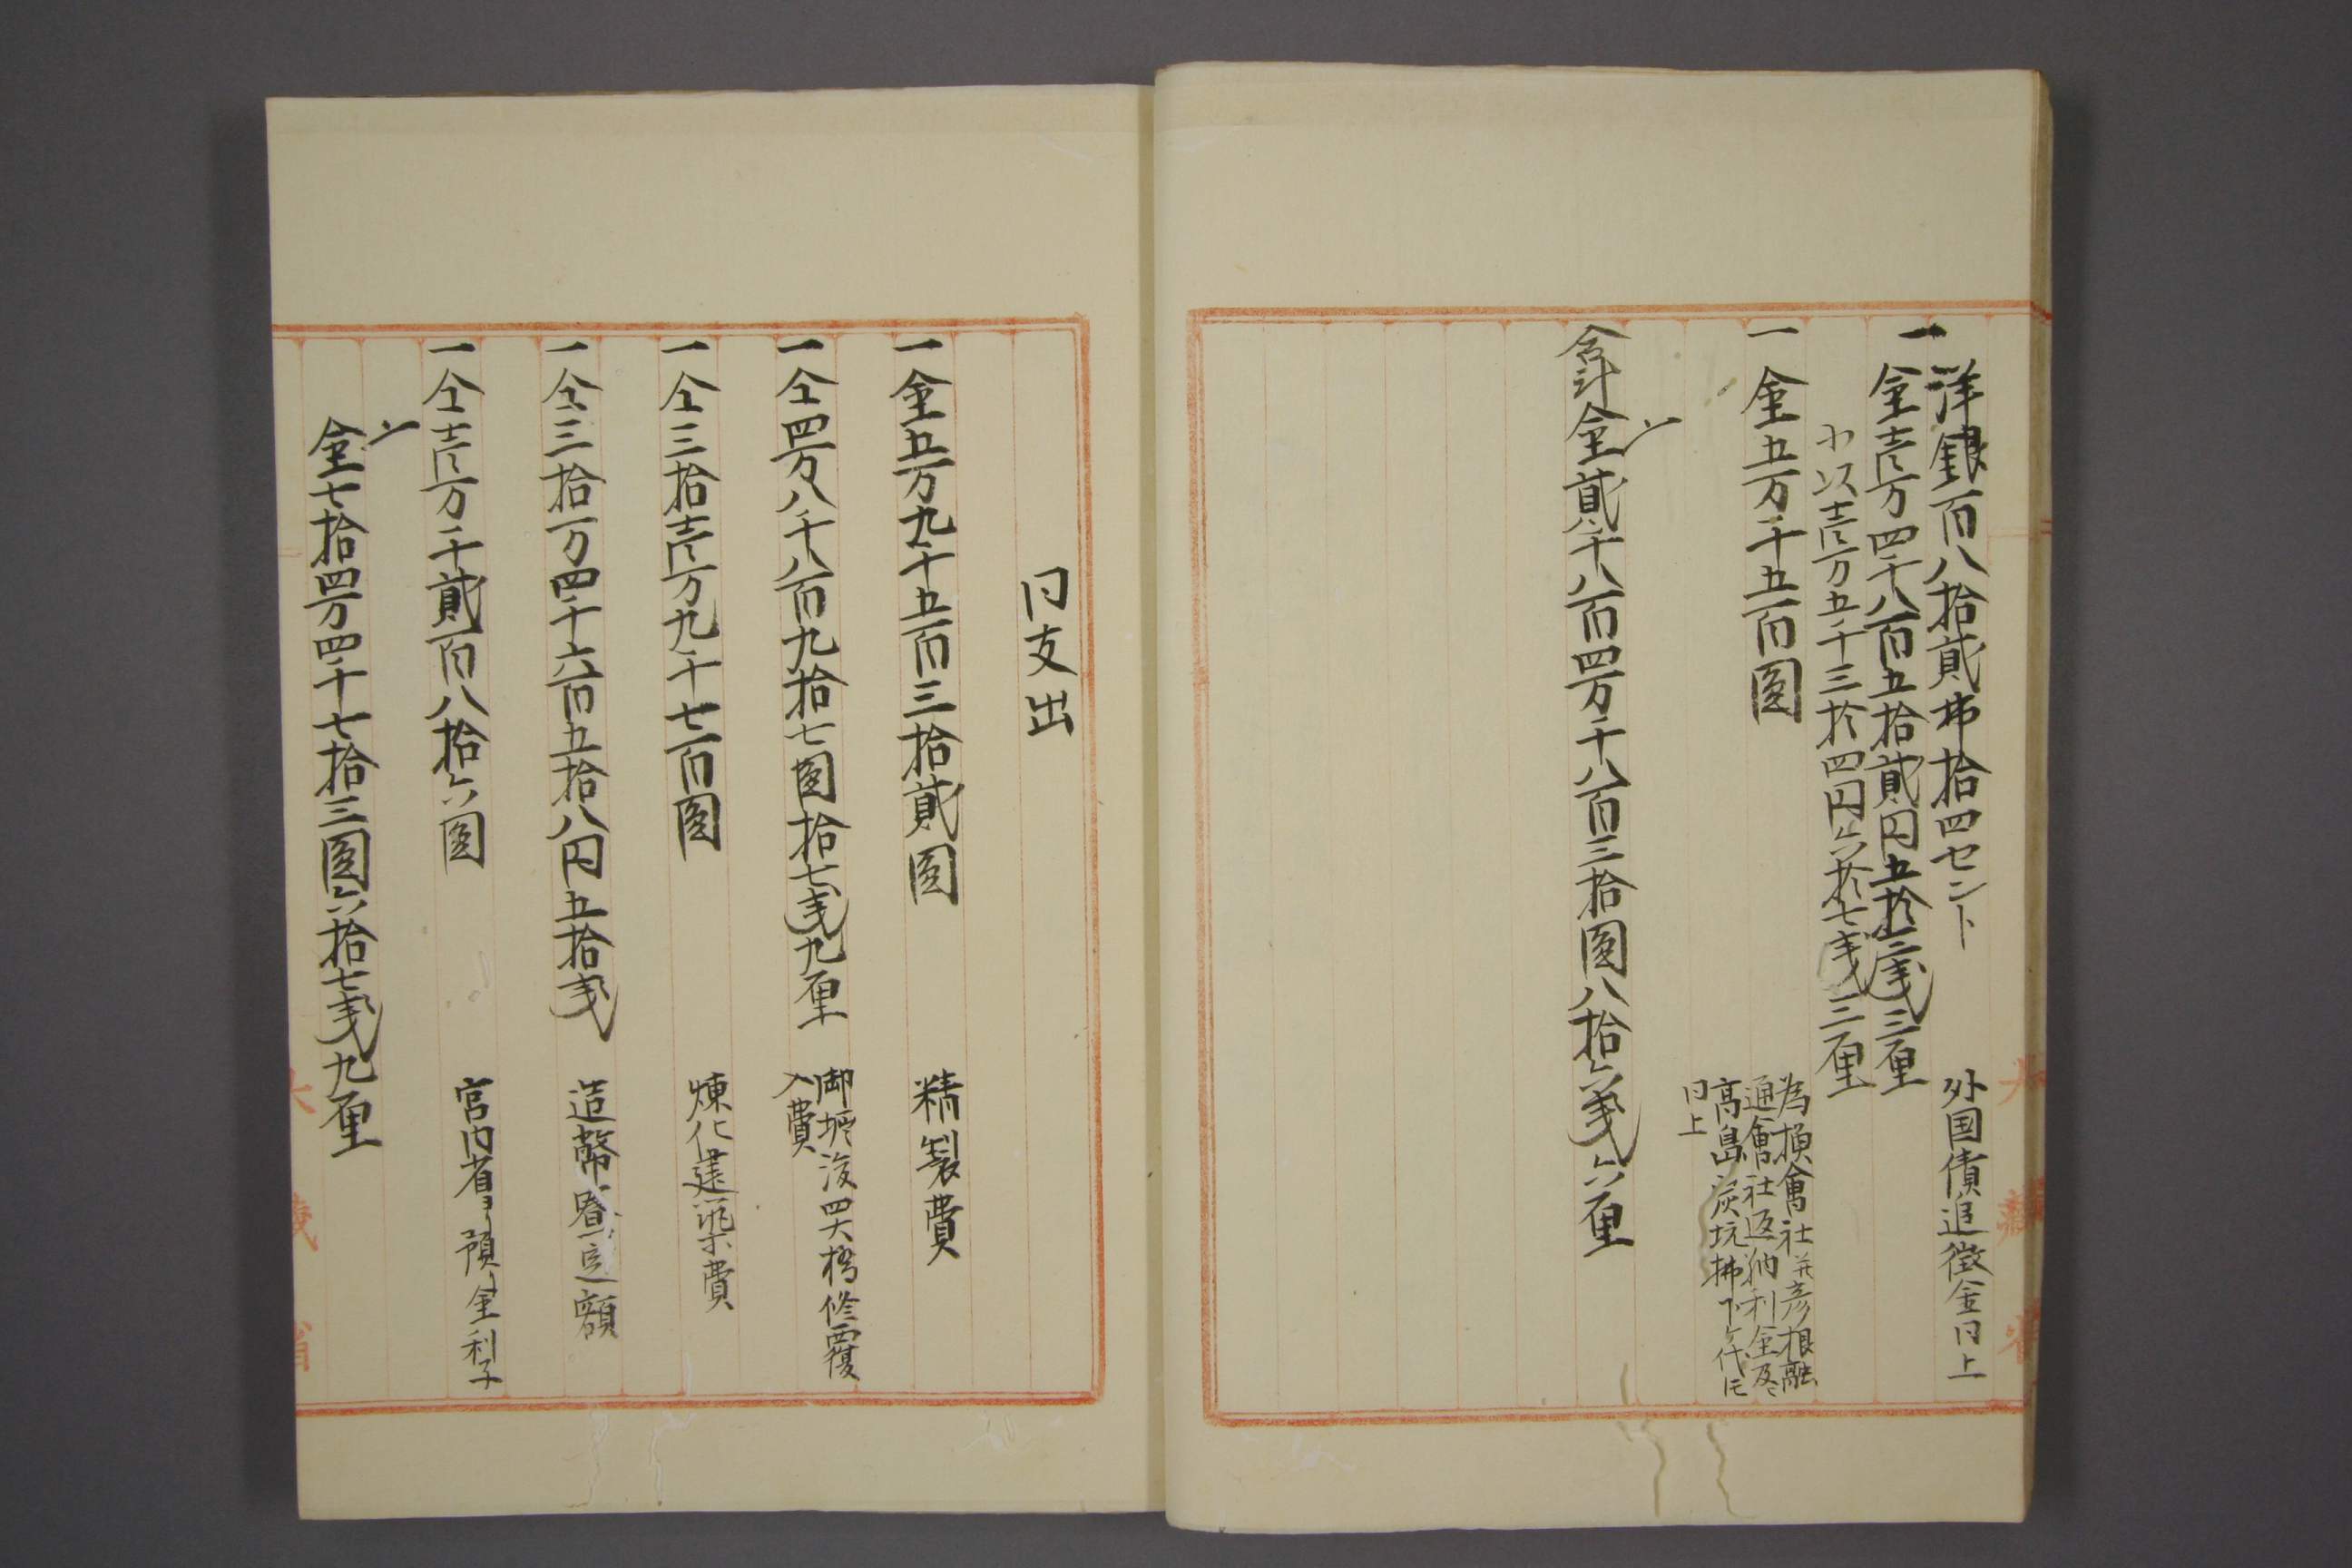 洋銀百八拾貳弗拾四セント　外国債追徴金同上
一
金壱万四千八百五拾貳円五拾三銭三厘
小以壱万五千三拾四円六拾七銭三厘
一金五万千五百圓　為損會社并彦根融
通會社返納利金及ヒ
高島炭坑拂下ケ代
同上
合計金貳千八百四万千八百三拾圓八拾六銭六厘
大蔵省
同支出
一金五万九千五百三拾貳圓　精製費
一仝四万八千八百九拾七圓拾七銭九厘　四大橋修覆
入費
一仝三拾壱万九千七百圓　煉化建築費
一仝三拾一万四千六百五拾八円五拾銭　造幣寮定額
一仝壱万千貳百八拾六圓　宮内省ヨリ預リ金利子
〆
金七拾四万四千七拾三圓六拾七銭九厘
大蔵省